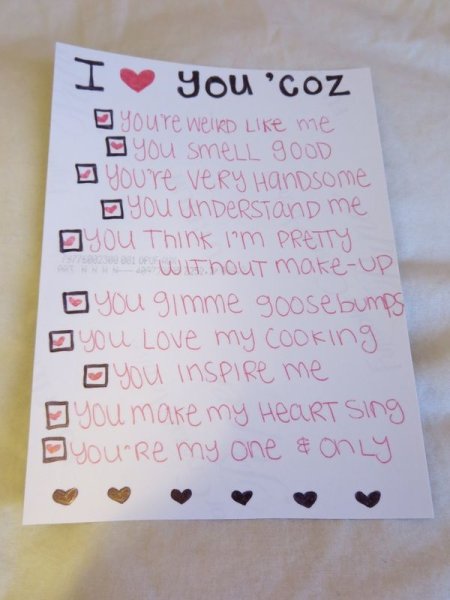 I ❤ you 'coz
You're weird like me
You smell good
You're very handsome
You understand me
You think I'm pretty
without make-up
You gimme goosebumps
You love my cooking
You inspire me
You make my heart sing
You're my one & only